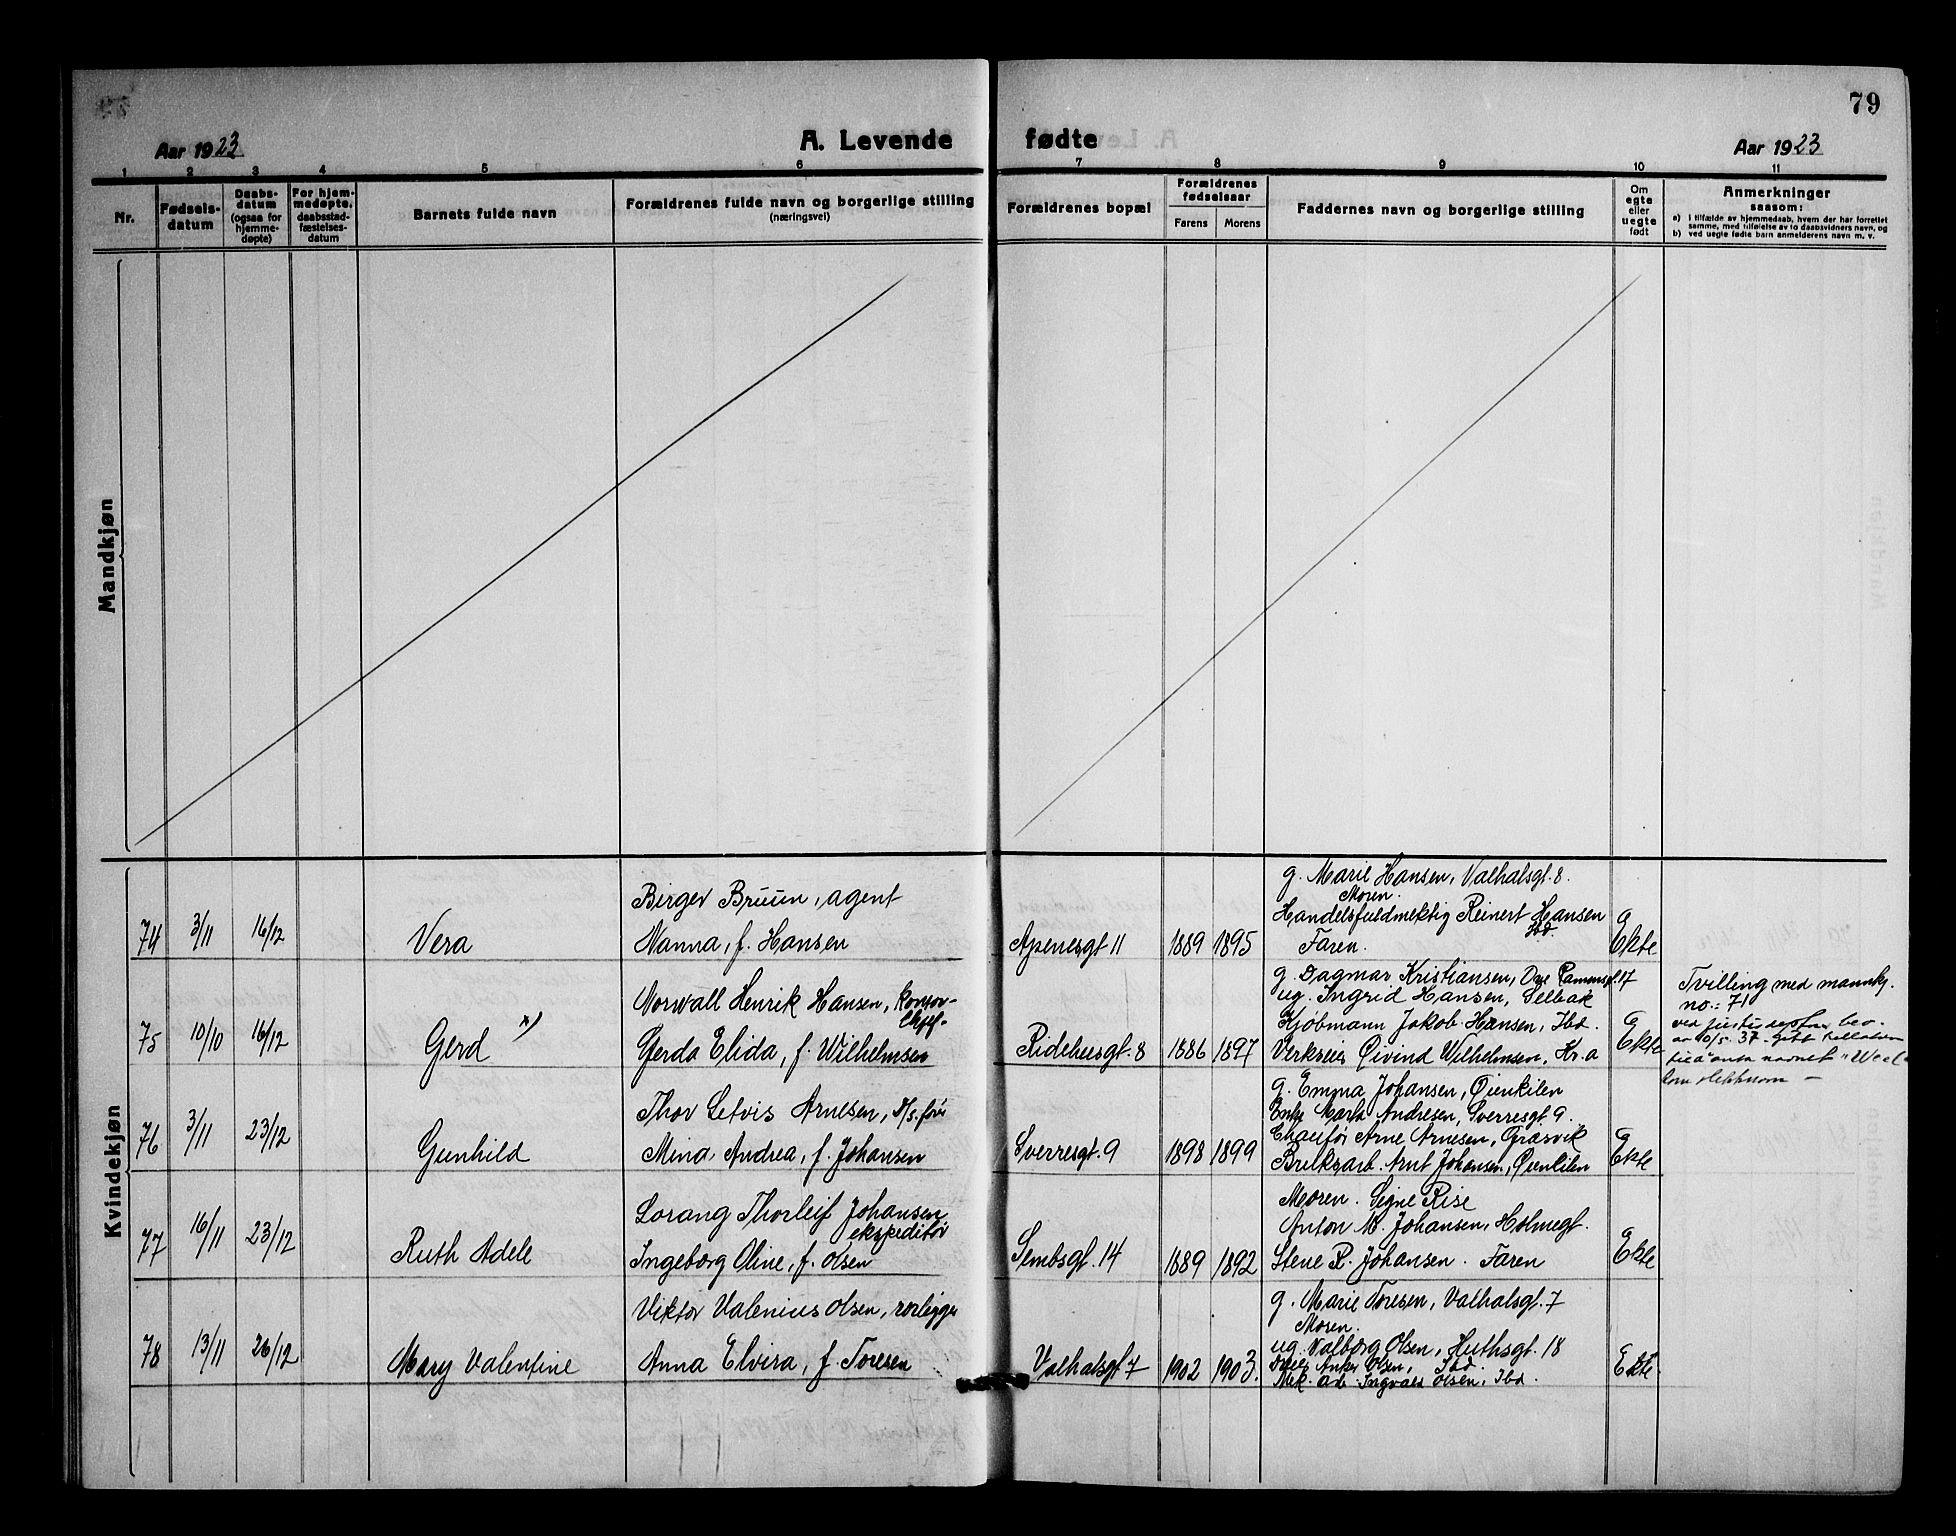 79
Aar 1923
A. Levende fødte
Aar 1923
1 2 3 4 5 6 7 8 9 10 11
Nr.
Fødsels-
datum
Daabs-
datum
(ogsaa for
hjemme-
døpte)
For hjem-
medøpte.
daabsstad-
fæstelses-
datum
Barnets fulde navn
Forældrenes fulde navn og borgerlige stilling
(næringsvei)
Forældrenes bopæl
Forældrenes
fødselsaar
Farens Morens
Faddernes navn og borgerlige stilling
Om
egte
eller
uegte
født
Anmerkninger
saasom:
a) i tilfælde av hjemmedaab, hvem der har forrettet
samme, med tilføielse av to daabsvidners navn, og
b) ved uegte fødte barn anmelderens navn m. v.
Mandkjøn
Kvindekjøn
74 3/11 16/12 Vera
Birger Bruun, agent
Nanna, f. Hansen
Apenesgt 11 1889 1895
g. Marie Hansen, Valhalsgt. 8.
Moren.
Handelsfuldmektig Reinert Hansen
Ibd.
Faren.
Ekte
75 10/10 16/12 Gerd x)
Norwall Henrik Hansen, kontor-
chef-
Gerda Elida, f. Wilhelmsen
Ridehusgt. 8 1886 1897
g. Dagmar Kristiansen, 17
ug. Ingrid Hansen, Selbak
Kjøbmann Jakob Hansen, Ibd.
Verkseier Øivind Wilhelmsen, Kr.a
Ekte
Tvilling med mannkj.
no.: 71
ved
av 10/5 - 37 - gitt
navnet
som
76 3/11 23/12 Gunhild
Thor Arnesen,
Mina Andrea, f. Johansen
Sverresgt. 9 1898 1899
g. Emma Johansen, Øienkilen
Enke Marta Andresen, Sverresgt 9.
Chaufför Arne Arnesen, Gräsvik
Bruksarb. Arnt Johansen, Øienkilen
Ekte
77 16/11 23/12 Ruth Adele
Lorang Thorleif Johansen
ekspeditör
Ingeborg Oline, f. Olsen
Sembsgt. 14 1889 1892
Moren. Signe Rise
Anton M. Johansen, Holmegt.
Stene R. Johansen. Faren
Ekte
78 13/11 26/12 Mary Valentine
Viktor Valenius Olsen, rörlegger
Anna Elvira, f. Toresen
Valhalsgt 7 1902 1903.
g. Marie Toresen, Valhalsgt. 7
Moren.
ug. Valborg Olsen, Huthsgt. 18
Anker Olsen, Ibd.
Mek. arb. Ingvald Olsen, Ibd.
Ekte.